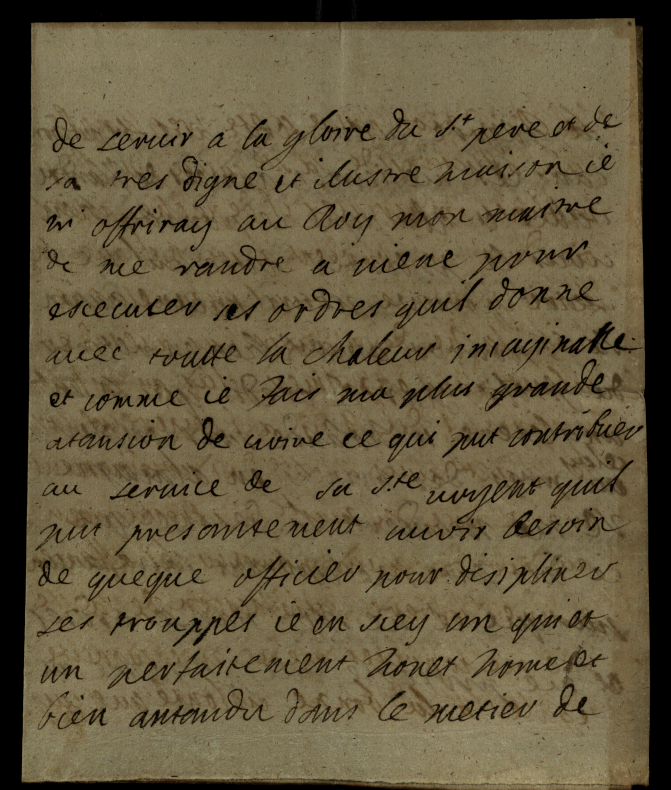 de servir a la gloire du S.t pere et de
sa tres digne et ilustre maison ie
m offriray au Roy mon maitre
de me randre a viene pour
executer ses ordres quil donne
avec toutte la chaleur imaginable
et comme ie fais ma plus grande
atansion de croire ce qui put contribuer
au service de sa S.te voyent quil
put presantement avoir besoin
de queque officier pour disipliner
ses trouppes ie en scey un qui et
un perfaitement honet home et
bien antandu dans le metier de